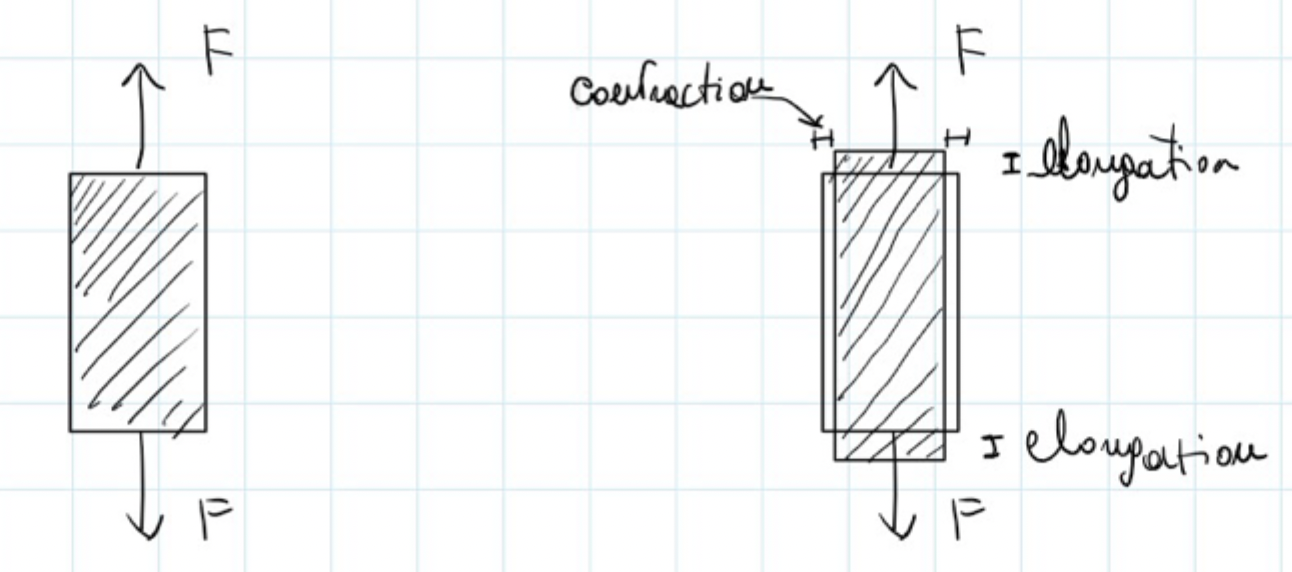 F
F
contraction
F
I elongation
I elongation
F
F